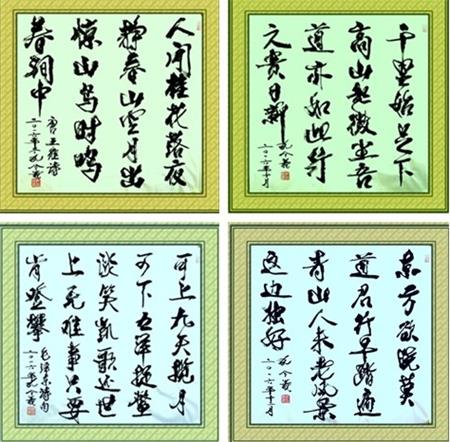 人闲桂花落夜
静春山空月出
惊山鸟时鸣
春涧中
唐王维诗
千里始足下
高山起微尘吾
道亦如此行
之贵日新
二〇〇六年十月
可上九天揽月
可下五洋捉鳖
谈笑凯歌还世
上无难事只要
肯登攀
毛泽东诗句
东方欲晓莫
道君行早踏遍
青山人未老风景
这边独好
二〇〇六年十二月